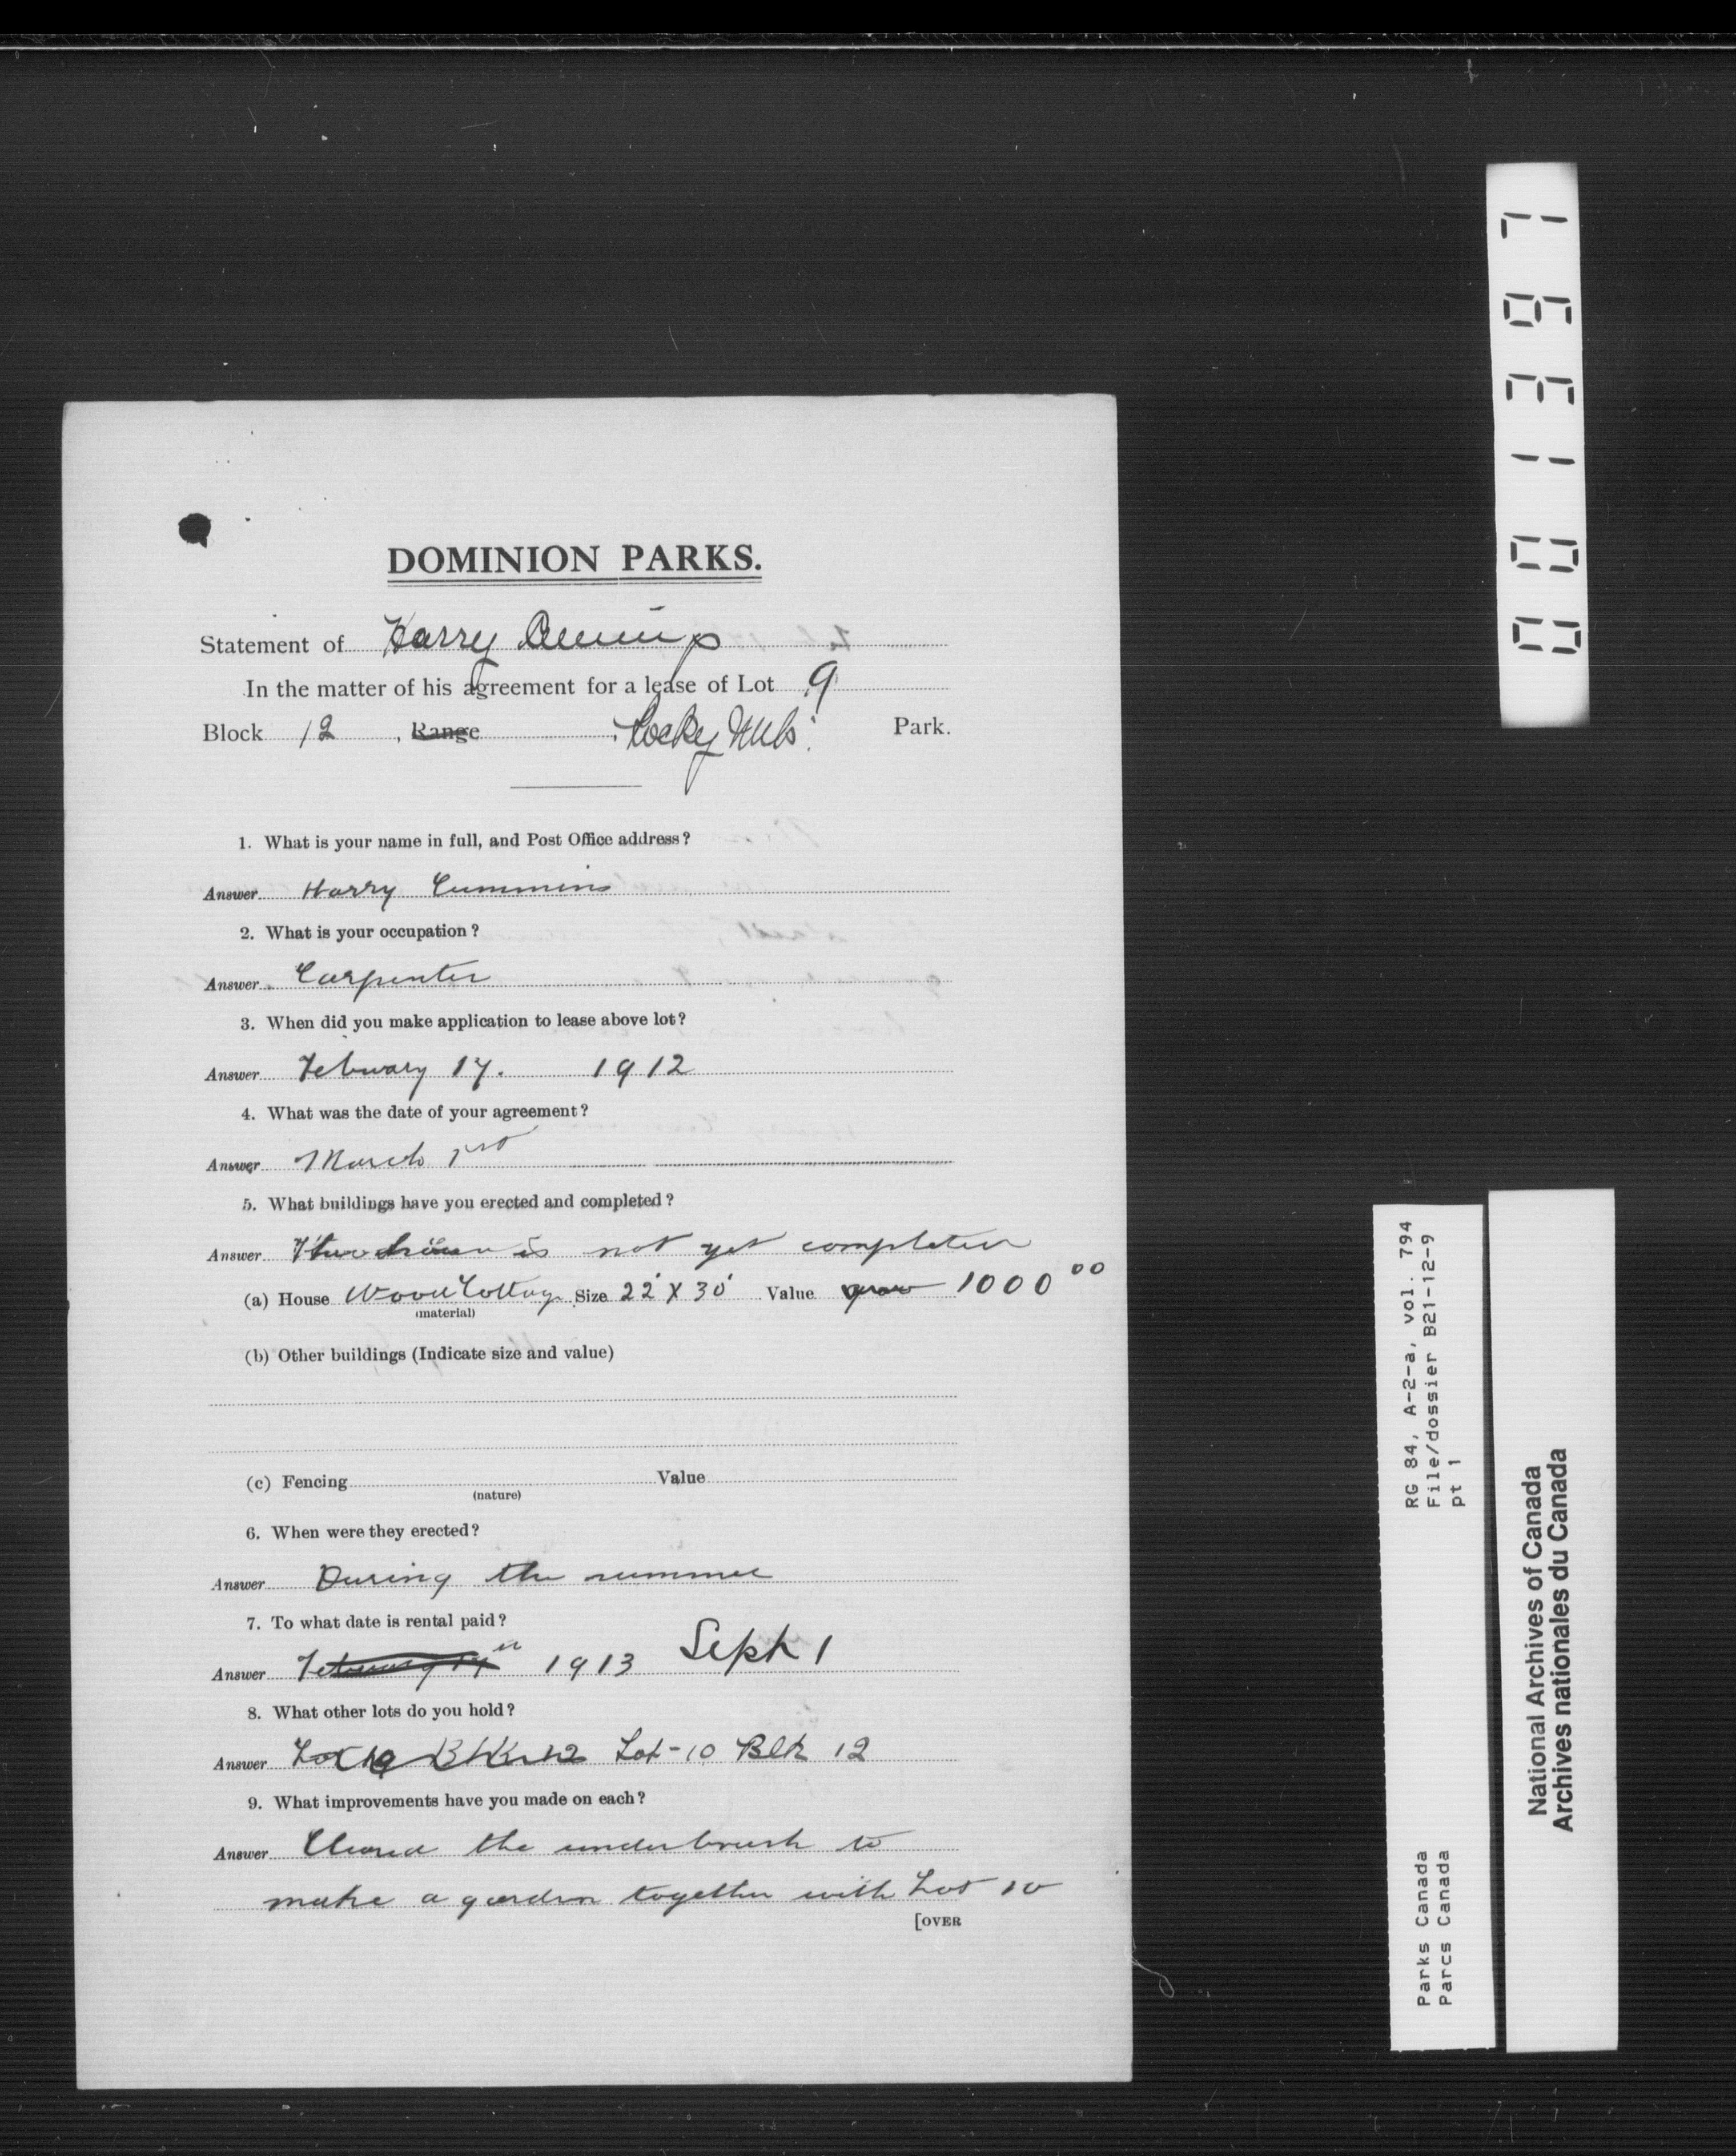 DOMINION PARKS.
Statement of Harry
In the matter of his agreement for a lease of Lot 9
Block 12, Range Rocky Mts. Park.
1. What is your name in full, and Post Office address?
Answer Harry Cummins
2. What is your occupation?
Answer Carpenter
3. When did you make application to lease above lot?
Answer Febuary 17. 1912
4. What was the date of your agreement?
Answer March 1st
5. What buildings have you erected and completed?
Answer is not yet completed
(a) House Wood Cottage Size 22' X 30' Value 1000 00
(material)
(b) Other buildings (Indicate size and value)
(c) Fencing Value
(nature)
6. When were they erected?
Answer During the summer
7. To what date is rental paid?
Answer Febuary 17 1913 Sept 1
8. What other lots do you hold?
Answer Lot-10 Blk 12
9. What improvements have you made on each?
Answer Cleared the underbrush to
make a garden together with Lot 10
[OVER
001397
RG 84, A-2-a, vol. 794
File/dossier B21-12-9
pt 1
Parks Canada
Parcs Canada
National Archives of Canada
Archives nationales du Canada